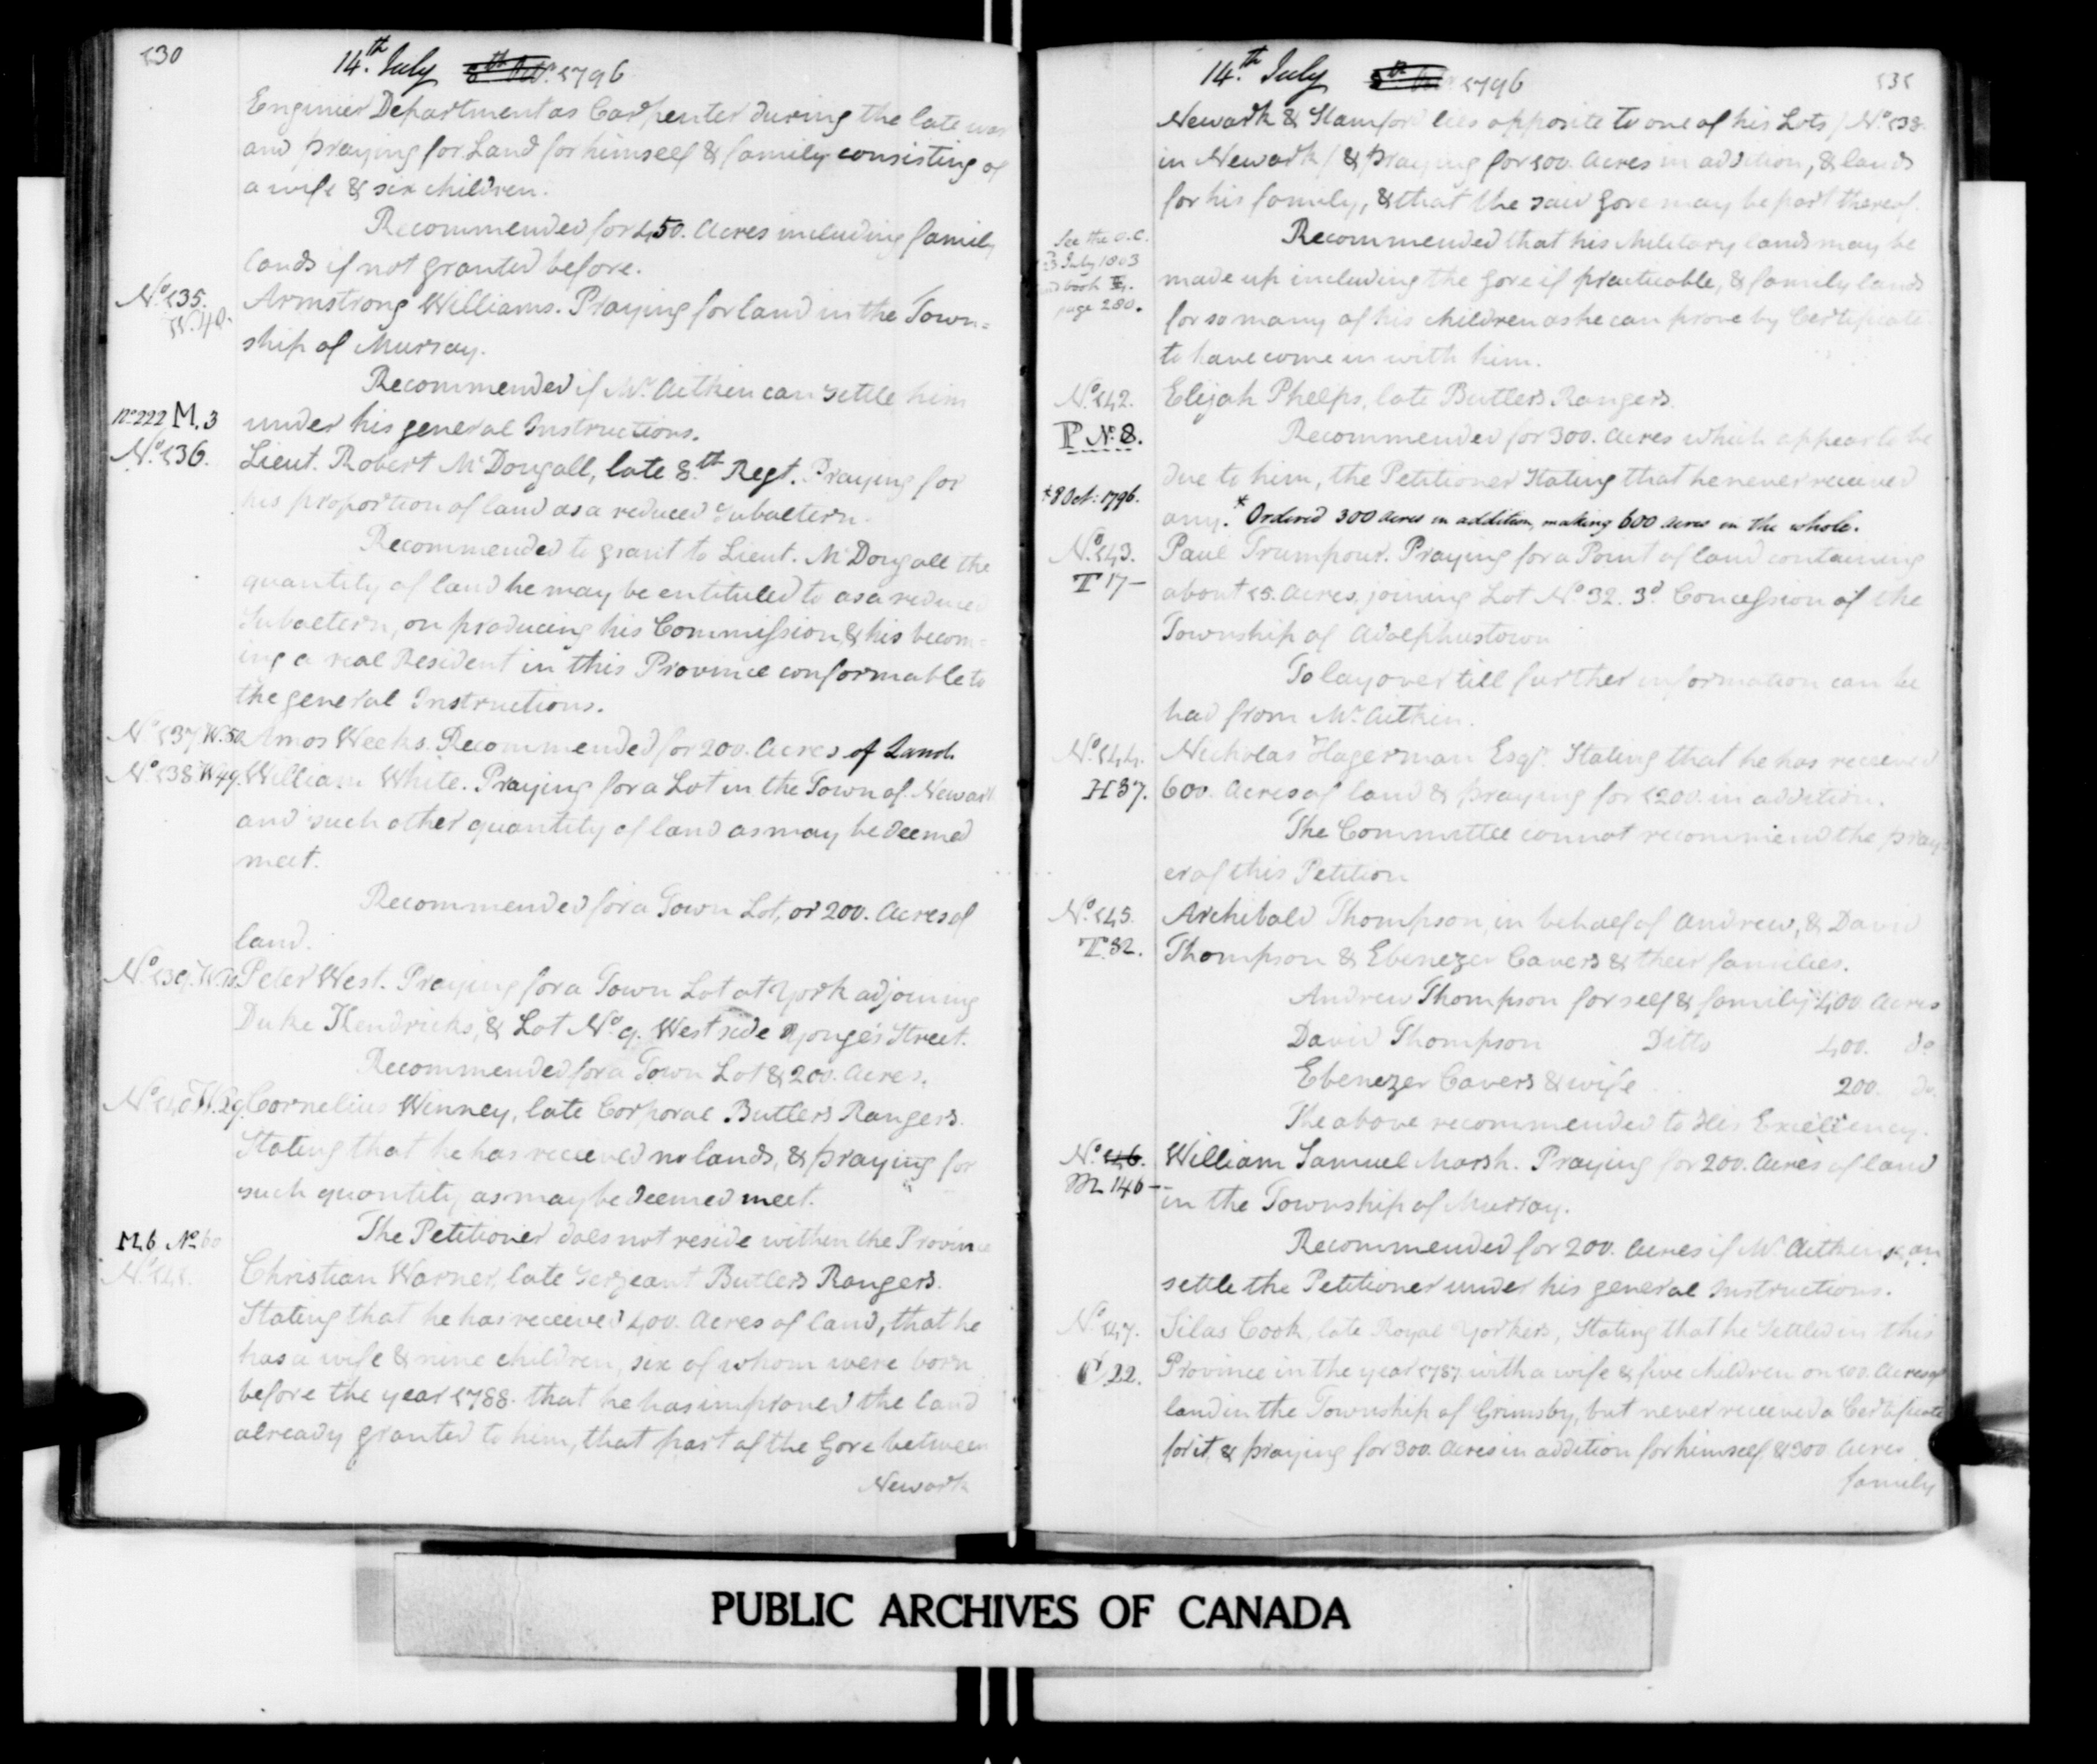 130
14th July 8th Octr. 1796
Engineer Department as Carpenter during the late war
and praying for Land for himself & family consisting of
a wife & six children.
Recommended for 450. Acres including family
lands if not granted before.
No. 135. Armstrong Williams. Praying for land in the Town=
W. 40. ship of Murray.
Recommended if Mr. Aitkin can settle him
No 222 M. 3 under his general Instructions.
No. 136. Lieut. Robert McDougall, late 8th Regt. Praying for
his proportion of land as a reduced Subaltern.
Recommended to grant to Lieut. McDougall the
quantity of land he may be entituled to as a reduced
Subaltern, on producing his Commission, & his becom=
ing a real Resident in this Province conformable to
the general Instructions.
No. 137 W. 50 Amos Weeks. Recommended for 200. Acres of Land.
No. 138 W 49. William White. Praying for a Lot in the Town of Newark
and such other quantity of land as may be deemed
meet.
Recommended for a Town Lot, or 200. Acres of
land.
No. 139. Peter West. Praying for a Town Lot at York adjoining
Duke Kendricks, & Lot No. 9. West side Yonge's Street.
Recommended for a Town Lot & 200. Acres.
No. 140 W. 29 Cornelius Winney, late Corporal Butler's Rangers.
Stating that he has received no lands, & praying for
such quantity as may be deemed meet.
M. 6 No. 60 The Petitioner does not reside within the Province
No. 141. Christian Warner, late Serjeant Butlers Rangers.
Stating that he has received 400. Acres of land, that he
has a wife & nine children, six of whom were born
before the year 1788. that he has improved the land
already granted to him, that part of the Gore between
Newark
14th July 8th 1796 131
Newark & Stamford lies opposite to one of his Lots / No. 138.
in Newark / & praying for 100. Acres in addition, & lands
for his family, & that the said Gore may be part thereof.
See the O.C. Recommended that his Military lands may be
July 1803
book E. made up including the Gore if practicable, & family lands
page 280. for so many of his children as he can prove by Certificate
to have come in with him.
No. 142. Elijah Phelps, late Butlers Rangers.
P No. 8. Recommended for 300. Acres which appear to be
due to him, the Petitioner Stating that he never received
*8 Oct: 1796. any. * Ordered 300 acres in addition, making 600 acres in the whole.
No. 143. Paul Trumpour. Praying for a Point of land containing
T 17— about 15. Acres, joining Lot No. 32. 3d. Concession of the
Township of Adolphustown
To lay over till further information can be
had from Mr. Aitkin.
No. 144. Nicholas Hagerman Esqr. Stating that he has received
H 37. 600. Acres of land & praying for 1200. in addition.
The Committee cannot recommend the pray=
er of this Petition
No. 145. Archibald Thompson, in behalf of Andrew, & David
T. 32. Thompson & Ebenezer Cavers & their families.
Andrew Thompson for self & family 400 Acres
David Thompson Ditto 400. do
Ebenezer Cavers & wife 200. do.
The above recommended to His Excellency.
No. 146. William Samuel Marsh. Praying for 200. Acres of land
M 146— in the Township of Murray.
Recommended for 200. Acres if Mr. Aitkin can
settle the Petitioner under his general Instructions.
No. 147. Silas Cook, late Royal Yorkers, Stating that he Settled in this
C 22. Province in the year 1787 with a wife & five children on 100. Acres of
land in the Township of Grimsby, but never received a Certificate
for it, & praying for 300. Acres in addition for himself, & 300 Acres
family
PUBLIC ARCHIVES OF CANADA